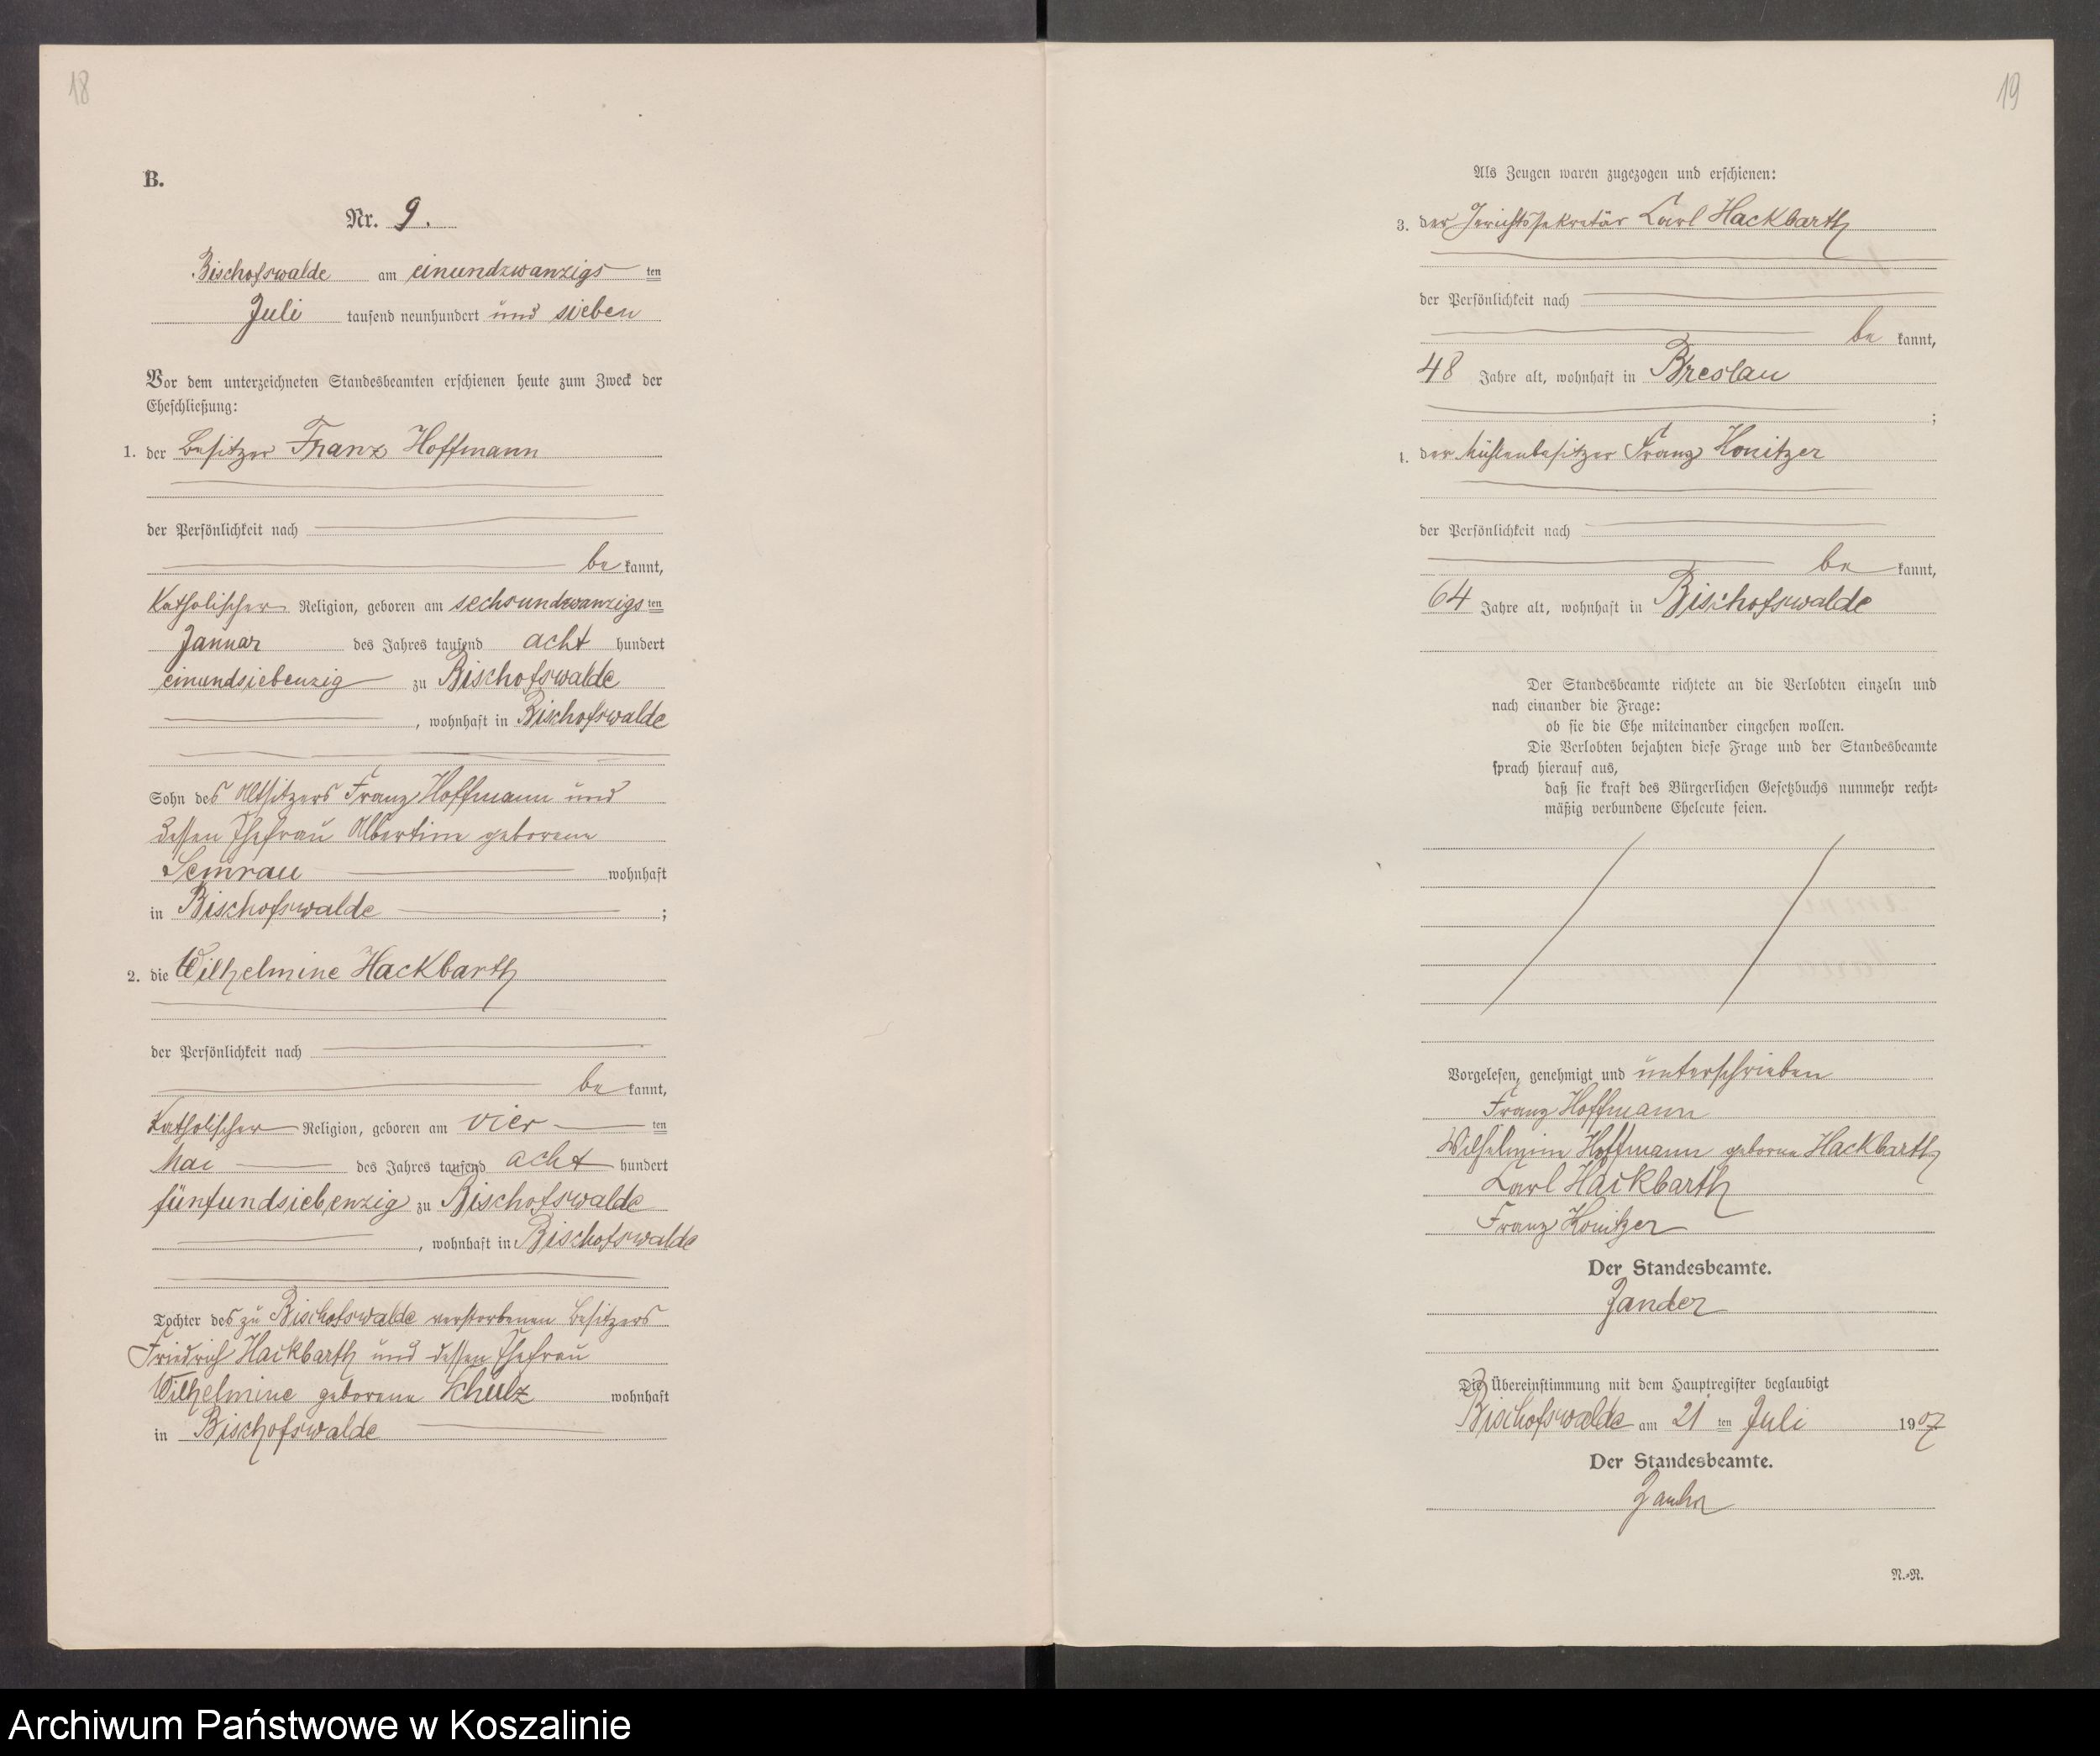 18
B.
Nr. 9.
Bischofswalde am einundzwanzigs ten
Juli tausend neunhundert und sieben
Vor dem unterzeichneten Standesbeamten erschienen heute zum Zweck der
Eheschließung:
1. der Besitzer Franz Hoffmann
der Persönlichkeit nach
be kannt,
Katholischer Religion, geboren am sechsundzwanzigs ten
Januar des Jahres tausend acht hundert
einundsiebenzig zu Bischofswalde
, wohnhaft in Bischofswalde
Sohn des Altsitzers Franz Hoffmann und
dessen Ehefrau Albertine geborene
Semrau wohnhaft
in Bischofswalde ;
2. die Wilhelmine Hackbarth
der Persönlichkeit nach
be kannt,
Katholischer Religion, geboren am vier ten
Mai des Jahres tausend acht hundert
fünfundsiebenzig zu Bischofswalde
, wohnhaft in Bischofswalde
Tochter des zu Bischofswalde verstorbenen Besitzers
Friedrich Hackbarth und dessen Ehefrau
Wilhelmine geborene Schulz wohnhaft
in Bischofswalde
19
Als Zeugen waren zugezogen und erschienen:
3. der Gerichtssekretär Carl Hackbarth
der Persönlichkeit nach
be kannt,
48 Jahre alt, wohnhaft in Breslau
;
4. der Mühlenbesitzer Franz Konitzer
der Persönlichkeit nach
be kannt,
64 Jahre alt, wohnhaft in Bischofswalde
Der Standesbeamte richtete an die Verlobten einzeln und
nach einander die Frage:
ob sie die Ehe miteinander eingehen wollen.
Die Verlobten bejahten diese Frage und der Standesbeamte
sprach hierauf aus,
daß sie kraft des Bürgerlichen Gesetzbuchs nunmehr recht-
mäßig verbundene Eheleute seien.
Vorgelesen, genehmigt und unterschrieben
Franz Hoffmann
Wilhelmine Hoffmann geborene Hackbarth
Carl Hackbarth
Franz Konitzer
Der Standesbeamte.
Zander
Die Übereinstimmung mit dem Hauptregister beglaubigt
Bischofswalde am 21 ten Juli 1907
Der Standesbeamte.
Zander
N.-R.
Archiwum Państwowe w Koszalinie